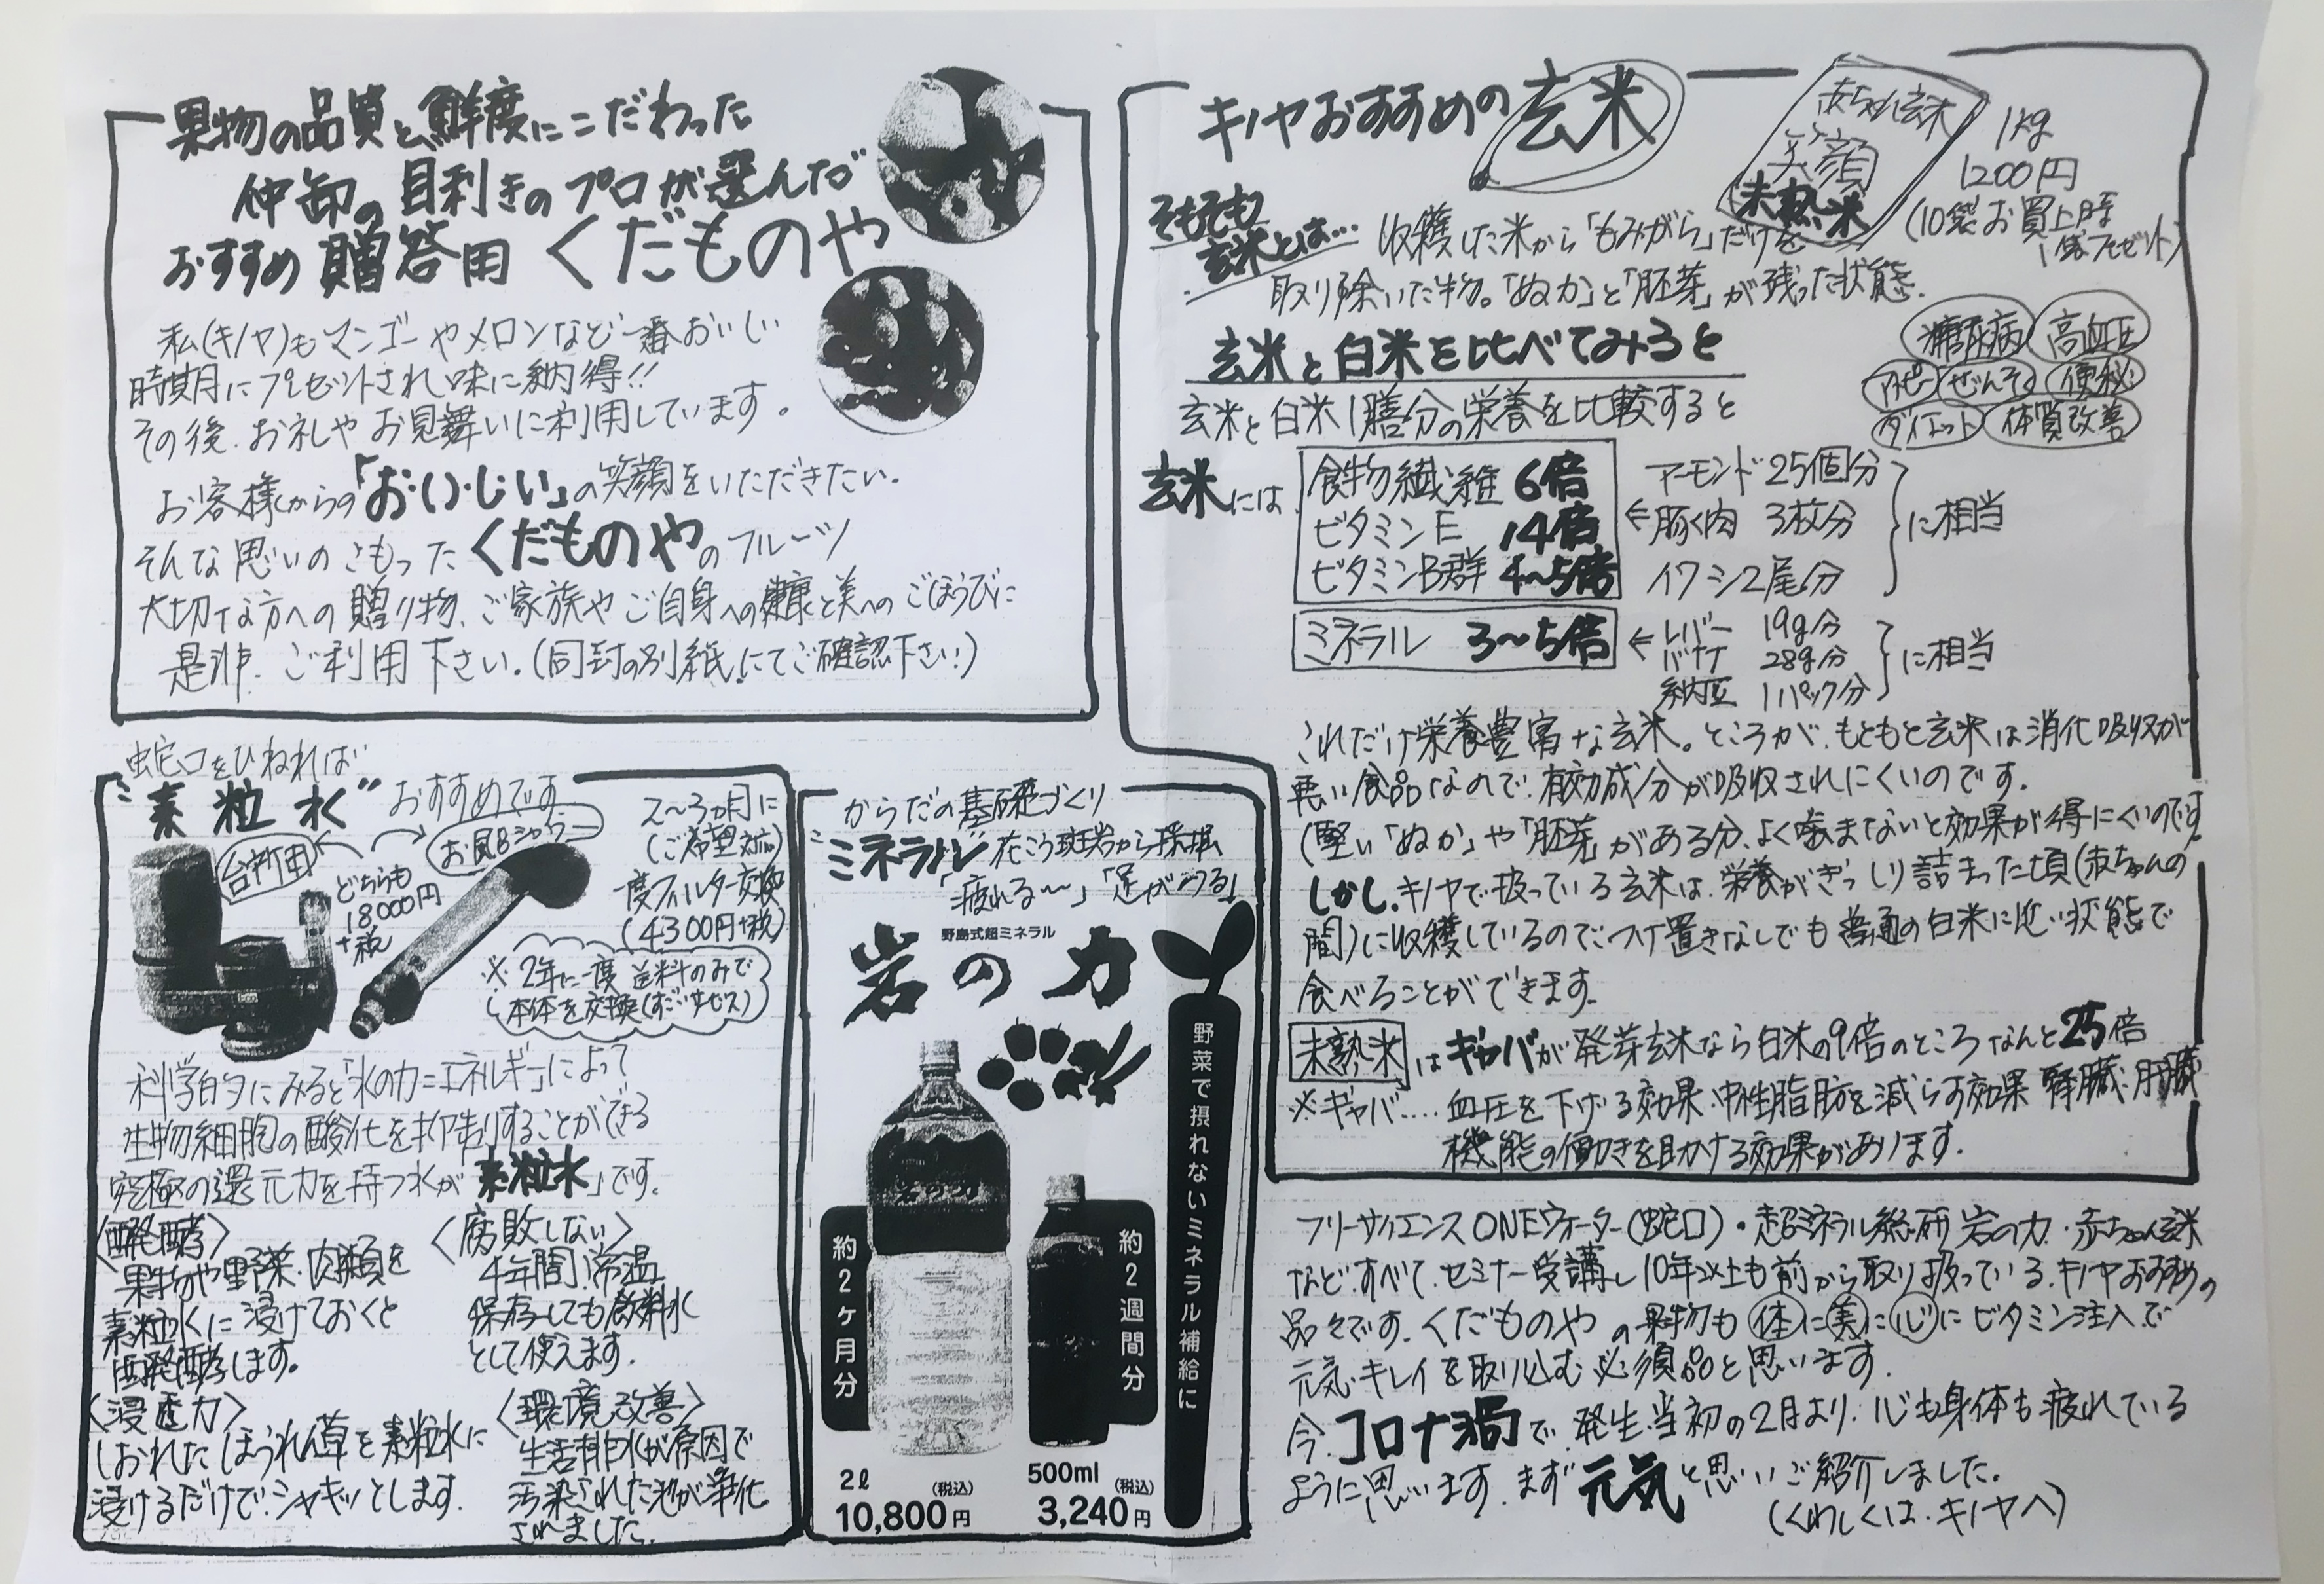 果物の品質と鮮度にこだわった
仲卸の目利きのプロが選んだ
おすすめ贈答用くだものや
私(キノヤ)もマンゴーやメロンなど一番おいしい
時期にプレゼントされ味に納得!!
その後、お礼やお見舞いに利用しています。
お客様からの「お・い・し・い」の笑顔をいただきたい。
そんな思いのこもったくだものやのフルーツ
大切な方への贈り物、ご家族やご自身への健康と美へのごほうびに
是非、ご利用下さい。(同封の別紙にてご確認下さい!)
キノヤおすすめの玄米
赤ちゃん玄米
笑顔
未熟米
1kg
1200円
(10袋お買上時
1袋プレゼント)
そもそも
玄米とは…
収穫した米から「もみがら」だけを
取り除いた物。「ぬか」と「胚芽」が残った状態。
玄米と白米を比べてみると
糖尿病 高血圧
アトピー ぜんそく 便秘
ダイエット 体質改善
玄米と白米1膳分の栄養を比較すると
玄米には
食物繊維 6倍
ビタミンE 14倍
ビタミンB群 4〜5倍
アーモンド 25個分
←豚肉 3枚分
イワシ2尾分
に相当
ミネラル 3〜5倍
←レバー 19g分
バナナ 28g分
納豆 1パック分
に相当
これだけ栄養豊富な玄米。ところが、もともと玄米は消化吸収が
悪い食品なので、有効成分が吸収されにくいのです。
(堅い「ぬか」や「胚芽」がある分、よく噛まないと効果が得にくいのです
しかし、キノヤで扱っている玄米は、栄養がぎっしり詰まった頃(赤ちゃんの
間)に収穫しているので、つけ置きなしでも普通の白米に近い状態で
食べることができます。
未熟米はギャバが発芽玄米なら白米の9倍のところなんと25倍
※ギャバ…血圧を下げる効果・中性脂肪を減らす効果 腎臓・肝臓
機能の働きを助ける効果があります。
蛇口をひねれば
"素粒水"おすすめです
台所用
お風呂シャワー
どちらも
18000円
+税
2〜3ヵ月に
(ご希望対応)
一度フィルター交換
(4300円+税)
※2年に一度送料のみで
本体を交換(すごいサービス)
科学的にみると「水の力=エネルギー」によって
生物細胞の酸化を抑制することができる
究極の還元力を持つ水が「素粒水」です。
〈醗酵〉
果物や野菜・肉類を
素粒水に浸けておくと
醗酵します。
〈腐敗しない〉
4年間、常温
保存しても飲料水
として使えます。
〈浸透力〉
しおれたほうれん草を素粒水に
浸けるだけで、シャキッとします。
〈環境改善〉
生活排水が原因で
汚染された池が浄化
されました。
からだの基礎づくり
"ミネラル"花こう斑岩から採掘
「疲れる〜」「足がつる」
野島式超ミネラル
岩の力
野菜で摂れないミネラル補給に
約2ヶ月分
約2週間分
2ℓ (税込)
10,800円
500ml (税込)
3,240円
フリーサイエンスONEウォーター(蛇口)・超ミネラル総研 岩の力・赤ちゃん玄米
など、すべて、セミナー受講し10年以上も前から取り扱っている、キノヤおすすめの
品々です。くだものやの果物も体に美に心にビタミン注入で
元気・キレイを取り込む必須品と思います。
今、コロナ渦で、発生当初の2月より、心も身体も疲れている
ように思います。まず元気と思いご紹介しました。
(くわしくは・キノヤへ)